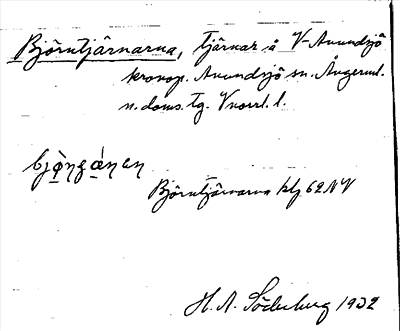 Björntjärnarna, tjärnar å V-Anundsjö
kronop. Anundsjö sn. Ångerml.
n. doms. tg. Vnorrl. l.
Björntjärnarna kbl 62 NV
H. A. Söderberg 1932